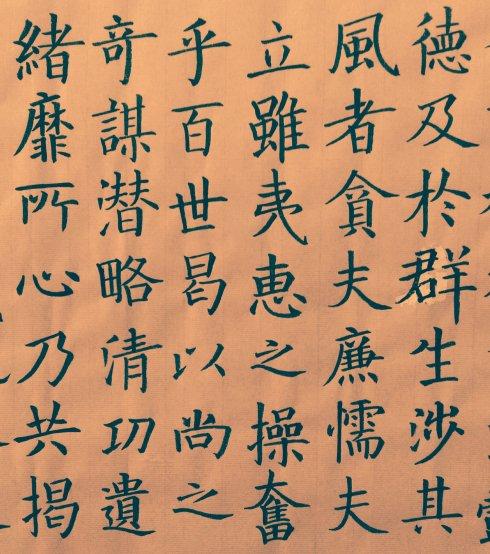 德及於群生涉其
風者貪夫廉懦夫
立雖夷惠之操奮
乎百世曷以尚之
奇謀潜略清功遺
緒靡所心乃共揭